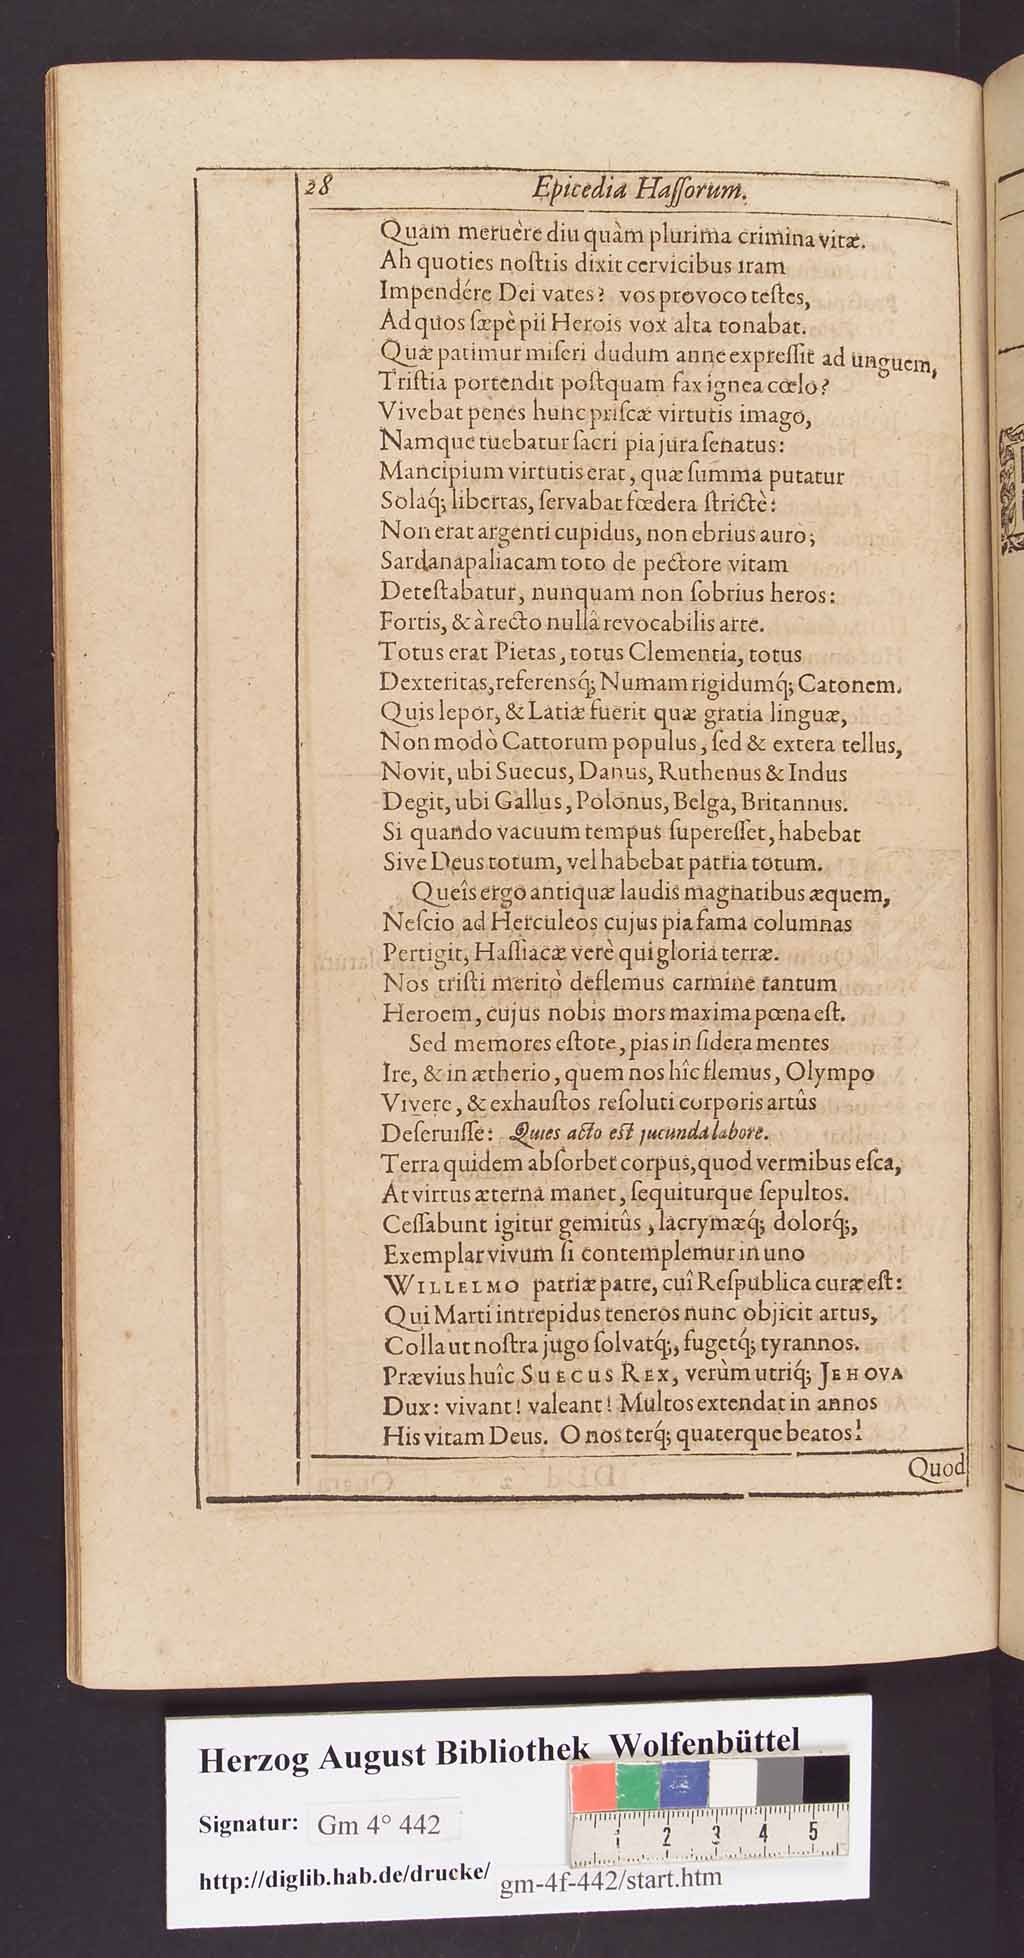 28 Epicedia Haſſorum.
Quam meruère diu quàm plurima crimina vitæ.
Ah quoties noſtris dixit cervicibus iram
Impendére Dei vates? vos provoco teſtes,
Ad quos ſæpè pii Herois vox alta tonabat.
Quæ patimur miſeri dudum anne expreſſit ad unguem,
Triſtia portendit poſtquam fax ignea cœlo?
Vivebat penes hunc priſcæ virtutis imago,
Namque tuebatur ſacri pia jura ſenatus:
Mancipium virtutis erat, quæ ſumma putatur
Solaq́; libertas, ſervabat fœdera ſtrictè:
Non erat argenti cupidus, non ebrius auro;
Sardanapaliacam toto de pectore vitam
Deteſtabatur, nunquam non ſobrius heros:
Fortis, & à recto nullâ revocabilis arte.
Totus erat Pietas, totus Clementia, totus
Dexteritas, referensq́; Numam rigidumq́; Catonem.
Quis lepor, & Latiæ fuerit quæ gratia linguæ,
Non modò Cattorum populus, ſed & extera tellus,
Novit, ubi Suecus, Danus, Ruthenus & Indus
Degit, ubi Gallus, Polonus, Belga, Britannus.
Si quando vacuum tempus ſupereſſet, habebat
Sive Deus totum, vel habebat patria totum.
Queîs ergo antiquæ laudis magnatibus æquem,
Neſcio ad Herculeos cujus pia fama columnas
Pertigit, Haſſiacæ verè qui gloria terræ.
Nos triſti meritò deflemus carmine tantum
Heroem, cujus nobis mors maxima pœna eſt.
Sed memores eſtote, pias in ſidera mentes
Ire, & in ætherio, quem nos hîc flemus, Olympo
Vivere, & exhauſtos reſoluti corporis artûs
Deſeruiſſe: Quies acto eſt jucunda labore.
Terra quidem abſorbet corpus, quod vermibus eſca,
At virtus æterna manet, ſequiturque ſepultos.
Ceſſabunt igitur gemitûs, lacrymæq́; dolorq́;,
Exemplar vivum ſi contemplemur in uno
WILLELMO patriæ patre, cuî Reſpublica curæ eſt:
Qui Marti intrepidus teneros nunc objicit artus,
Colla ut noſtra jugo ſolvatq́;, fugetq́; tyrannos.
Prævius huîc SUECUS REX, verùm utriq́; JEHOVA
Dux: vivant! valeant! Multos extendat in annos
His vitam Deus. O nos terq́; quaterque beatos!
Quod
Herzog August Bibliothek Wolfenbüttel
Signatur: Gm 4° 442
http://diglib.hab.de/drucke/ gm-4f-442/start.htm
1 2 3 4 5